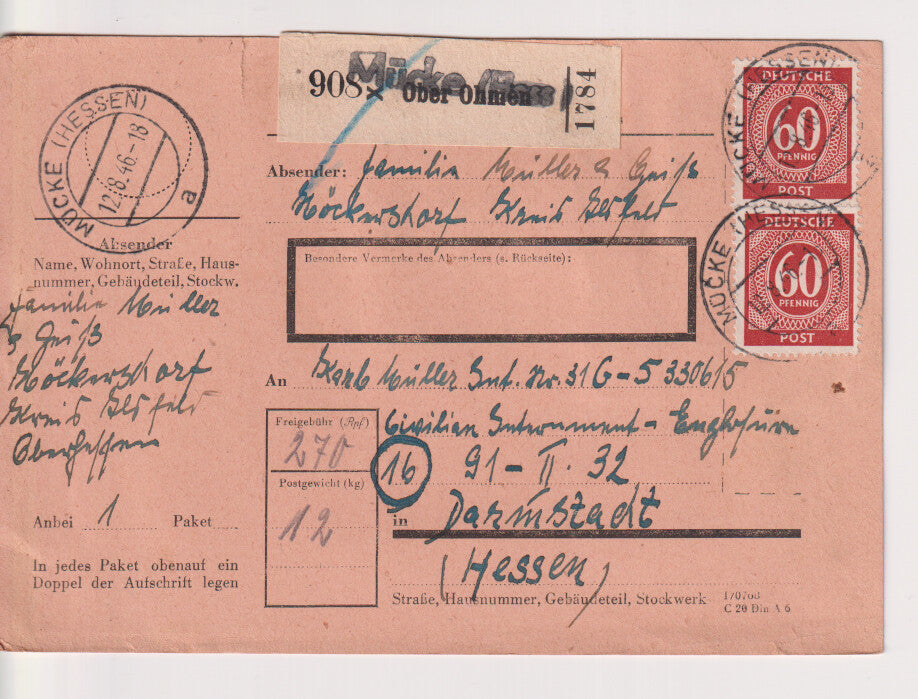 MÜCKE (HESSEN)
12.8.46.-18
a
908
Mücke
Ober Ohmen
1784
MÜCKE (HESSEN)
DEUTSCHE
60
PFENNIG
POST
MÜCKE (HESSEN)
DEUTSCHE
60
PFENNIG
POST
Absender: Familie Müller b Geiß
Höckersdorf Kreis Alsfeld
Besondere Vermerke des Absenders (s. Rückseite):
Absender
Name, Wohnort, Straße, Haus-
nummer, Gebäudeteil, Stockw.
Familie Müller
b Geiß
Höckersdorf
Kreis Alsfeld
Oberhessen
Anbei 1 Paket
In jedes Paket obenauf ein
Doppel der Aufschrift legen
An Karl Müller Int. Nr. 31G-5330615
Civilian Internment-
16 91-II. 32
in Darmstadt
(Hessen)
Straße, Hausnummer, Gebäudeteil, Stockwerk
Freigebühr (Rpf)
270
Postgewicht (kg)
12
C 20 Din A 6